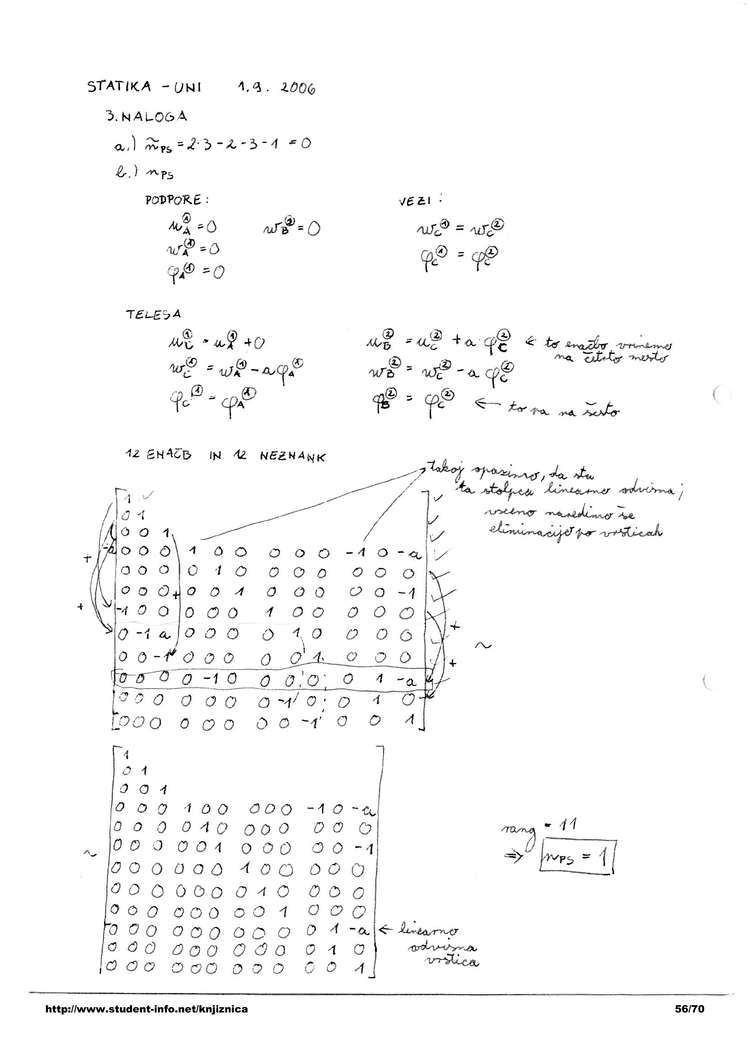 STATIKA - UNI 1.9. 2006
3. NALOGA
a.) ñ_PS = 2·3 - 2 - 3 - 1 = 0
b.) n_PS
PODPORE: VEZI:
u_A^① = 0 w_B^② = 0 w_C^① = w_C^②
w_A^① = 0 φ_C^① = φ_C^②
φ_A^① = 0
TELESA
u_C^① = u_A^① + 0 u_B^② = u_C^② + a·φ_C^② ← to enačbo vrinemo
na četrto mesto
w_C^① = w_A^① - aφ_A^① w_B^② = w_C^② - a φ_C^②
φ_C^① = φ_A^① φ_B^② = φ_C^② ← to pa na šesto
12 ENAČB IN 12 NEZNANK
takoj opazimo, da sta
ta stolpca linearno odvisna;
vseeno naredimo še
eliminacijo po vrsticah
1
0 1
0 0 1
0 0 0 1 0 0 0 0 0 -1 0 -a
0 0 0 0 1 0 0 0 0 0 0 0
0 0 0 0 0 1 0 0 0 0 0 -1
-1 0 0 0 0 0 1 0 0 0 0 0
0 -1 a 0 0 0 0 1 0 0 0 0
0 0 -1 0 0 0 0 0 1 0 0 0
0 0 0 0 -1 0 0 0 0 0 1 -a
0 0 0 0 0 0 0 -1 0 0 1 0
0 0 0 0 0 0 0 0 -1 0 0 1
~
1
0 1
0 0 1
0 0 0 1 0 0 0 0 0 -1 0 -a
0 0 0 0 1 0 0 0 0 0 0 0
0 0 0 0 0 1 0 0 0 0 0 -1
~ 0 0 0 0 0 0 1 0 0 0 0 0
0 0 0 0 0 0 0 1 0 0 0 0
0 0 0 0 0 0 0 0 1 0 0 0
0 0 0 0 0 0 0 0 0 0 1 -a ← linearno
0 0 0 0 0 0 0 0 0 0 1 0 odvisna
0 0 0 0 0 0 0 0 0 0 0 1 vrstica
rang = 11
⇒ n_PS = 1
http://www.student-info.net/knjiznica 56/70